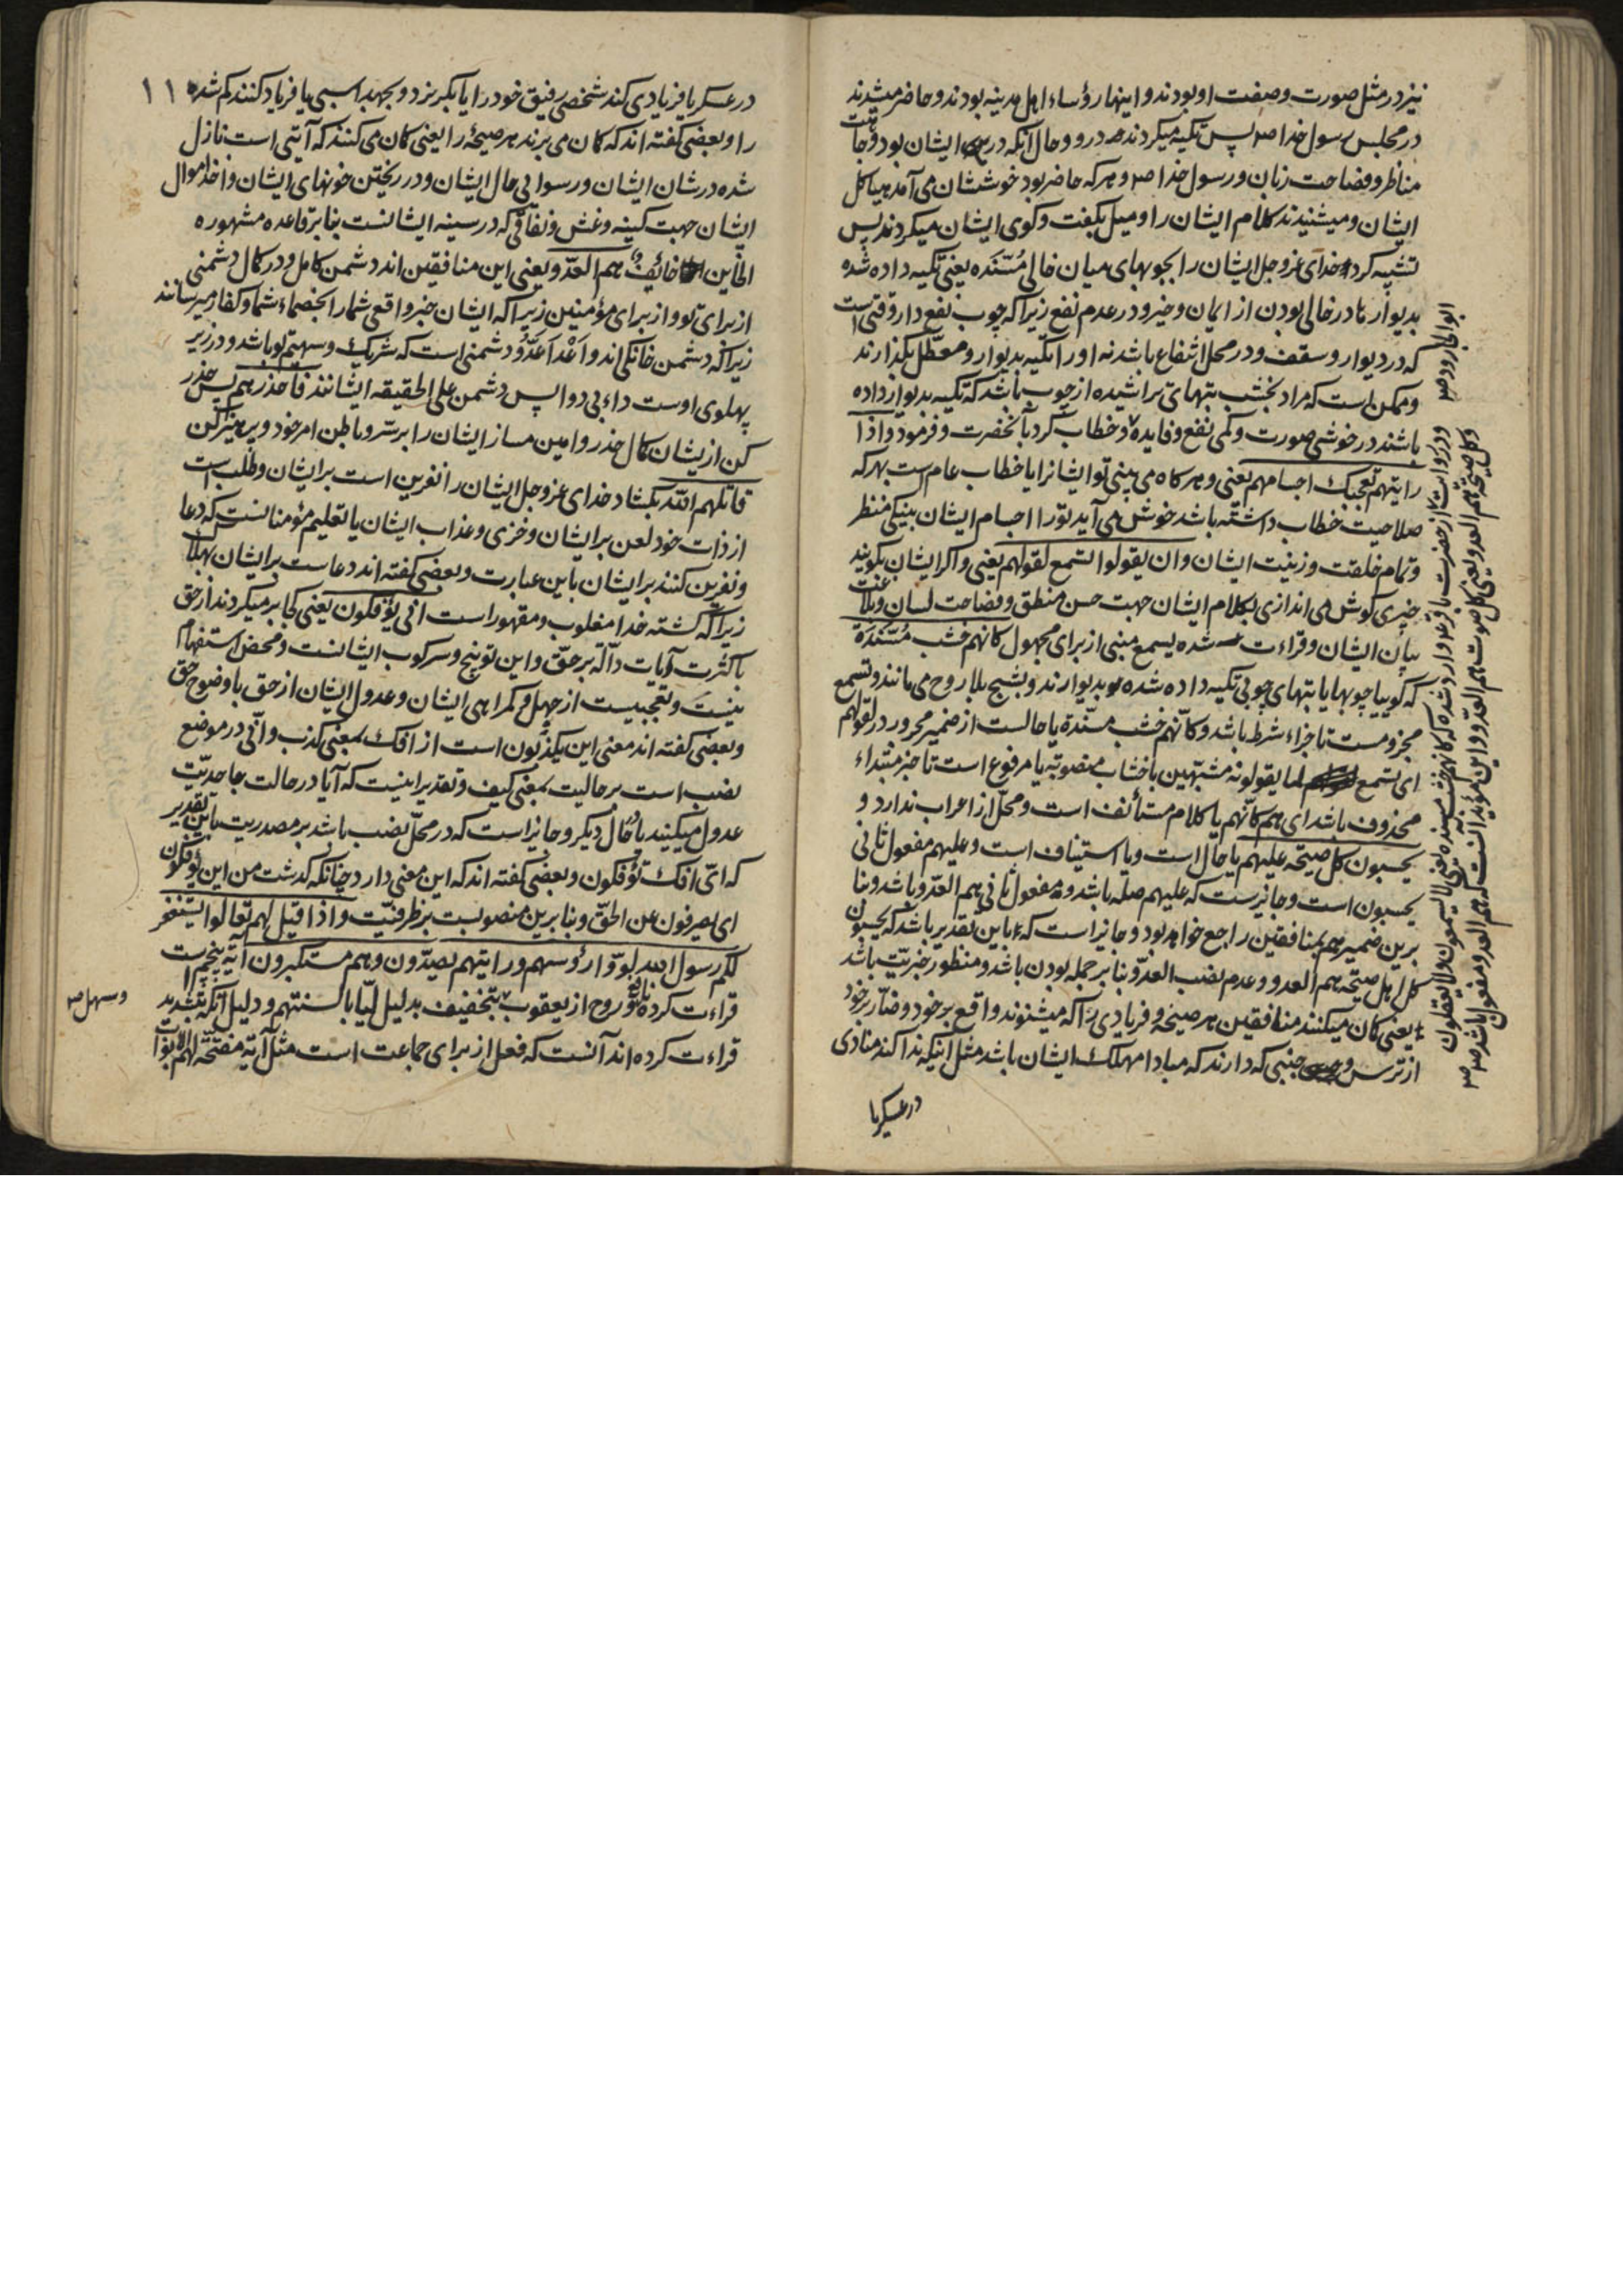 نیز در مثل صورت و صفت او بودند و اینها رؤساء اهل مدینه بودند و حاضر میشدند
در مجلس رسول خدا ص پس تکیه میکردند در و حال آنکه در ایشان بود وجاهت
مناظر و فصاحت زبان و رسول خدا ص و هر که حاضر بود خوششان می آمد هیاکل
ایشان و میشنیدند کلام ایشان را و میل بگفت و کوی ایشان میکردند پس
تشبیه کرد خدای عز و جل ایشان را بچوبهای میان خالی مُسَنَّده یعنی تکیه داده شده
بدیوارها در خالی بودن از ایمان و خیر و در عدم نفع زیرا که چوب نفع دار وقتی است
که در دیوار و سقف و در محل انتفاع باشد نه او را تکیه بدیوار و معطّل بگذارند
و ممکن است که مراد بخشب بتهای تراشیده از چوب باشد که تکیه بدیوار داده
باشند در خوشی صورت و کمی نفع و فایده و خطاب کرد بآنحضرت و فرمود و اذا
رایتهم تعجبک اجسامهم یعنی و هر کاه می بینی تو ایشانرا یا خطاب عام است بهر که
صلاحیت خطاب داشته باشد خوش می آید تو را اجسام ایشان بنیکی منظر
و تمام خلقت و زینت ایشان و ان یقولوا تسمع لقولهم یعنی و اکر ایشان بکویند
خبری کوش می اندازی بکلام ایشان جهت حسن منطق و فصاحت لسان و بلاغت
بیان ایشان و قراءت شده یسمع مبنی از برای مجهول کانهم خشب مُسَنَّدَة
که کوییا چوبها یا بتهای چوبی تکیه داده شده بدیوارند و بشبح بلا روح می مانند و تسمع
مجزومست تا جزاء شرط باشد و کانّهم خشب مسنّدة یا حالست از ضمیر مجرور در لقولهم
ای تسمع لما یقولونه مشبّهین باخشاب منصوبة یا مرفوع است تا خبر مبتداء
محذوف باشد ای هم کانّهم یا کلام مستأنف است و محلّ از اعراب ندارد و
یحسبون کل صیحة علیهم یا حال است و یا استیناف است و علیهم مفعول ثانی
یحسبون است و جایزست که علیهم صله باشد و مفعول ثانی هم العدّو باشد و بنا
برین ضمیر هم بمنافقین راجع خواهد بود و جایز است که باین تقدیر باشد که یحسبون
کل اهل صیحة هم العدو و عدم نصب العدّو بنا بر جمله بودن باشد و منظور خبریّت باشد
یعنی کمان میکنند منافقین هر صیحه و فریادی را که میشنوند واقع بر خود و ضارّ بر خود
از ترس و جبنی که دارند که مبادا مهلک ایشان باشد مثل اینکه ندا کند منادی
در عسکر یا
ابو الجارود ص
و در روایت از حضرت باقر ع وارد شده که کانهم خشب مسنده یعنی لا یسمعون و لا یعقلون
و کل صیحة هم العدو یعنی کل صوت هم العدّو و این مؤید آنست که هم العدو مفعول باشد ص
در عسکر یا فریادی کند شخصی رفیق خود را یا بگریزد و بجهد اسبی یا فریاد کنند کم شده ۱۱
را و بعضی کفته اند که کمان می برند هر صیحة را یعنی کمان می کنند که آیتی است نازل
شده در شان ایشان و رسوایی حال ایشان و در ریختن خونهای ایشان و اخذ اموال
ایشان جهت کینه و غش و نفاقی که در سینه ایشانست بنا بر قاعده مشهوره
الخاین خائف هم العدّو یعنی این منافقین اند دشمن کامل و در کمال دشمنی
از برای تو و از برای مؤمنین زیرا که ایشان خبر واقعی شما را بخصماء شما و کفار میرسانند
زیرا که دشمن خانکی اند و اَعْدَا عَدُوّ دشمنی است که شریک و سهیم تو باشد و در زیر
پهلوی اوست داء بی دوا پس دشمن علی الحقیقه ایشانند فاحذرهم پس حذر
کن از یشان کمال حذر و امین مساز ایشان را بر سرّ و باطن امر خود و پرهیز کن
قاتلهم الله بکشاد خدای عز و جل ایشان را نفرین است بر ایشان و طلب است
از ذات خود لعن بر ایشان و خزی و عذاب ایشان یا تعلیم مؤمنانست که دعا
و نفرین کنند بر ایشان باین عبارت و بعضی کفته اند دعاست بر ایشان بهلاک
زیرا که کشته خدا مغلوب و مقهور است انی یؤفکون یعنی کجا بر میکردند از حق
با کثرت آیات دالّه بر حقّ و این توبیخ و سرکوب ایشانست و محض استفهام
نیست و تعجّبیست از جهل و کمراهی ایشان و عدول ایشان از حق با وضوح حق
و بعضی کفته اند معنی این یکذّبون است از افک بمعنی کذب و انّی در موضع
نصب است بر حالیت بمعنی کیف و تقدیر اینست که آیا در حالت جاحدیّت
عدول میکنید یا حال دیکر و جایز است که در محلّ نصب باشد بر مصدریت باین تقدیر
که ایّ افک تؤفکون و بعضی کفته اند که این معنی دارد چنانکه کذشت من این یؤفکون
ای یصرفون عن الحقّ و بنا برین منصوبست بر ظرفیّت و اذا قیل لهم تعالوا یستغفر
لکم رسول الله لووّا رؤسهم و رایتهم یصدّون و هم مستکبرون آیه پنجم است
قراءت کرده نافع و روح از یعقوب بتخفیف بدلیل لیّا بالسنتهم و دلیل آنکه بتشدید
قراءت کرده اند آنست که فعل از برای جماعت است مثل آیة مفتّحة لهم الابواب
و سهل ص